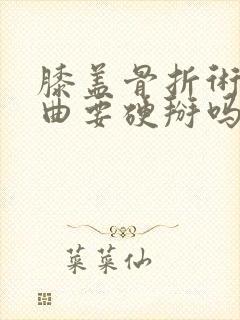 膝盖骨折术
曲要硬掰吗
菜菜仙